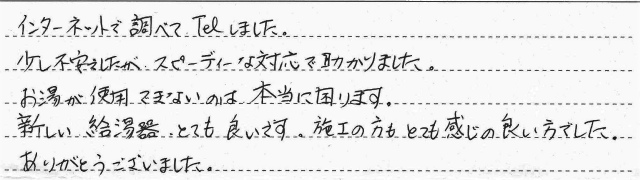 インターネットで調べて Telしました。
少し不安でしたが、スピーディーな対応で助かりました。
お湯が使用できないのは本当に困ります。
新しい給湯器、とても良いです。施工の方もとても感じの良い方でした。
ありがとうございました。